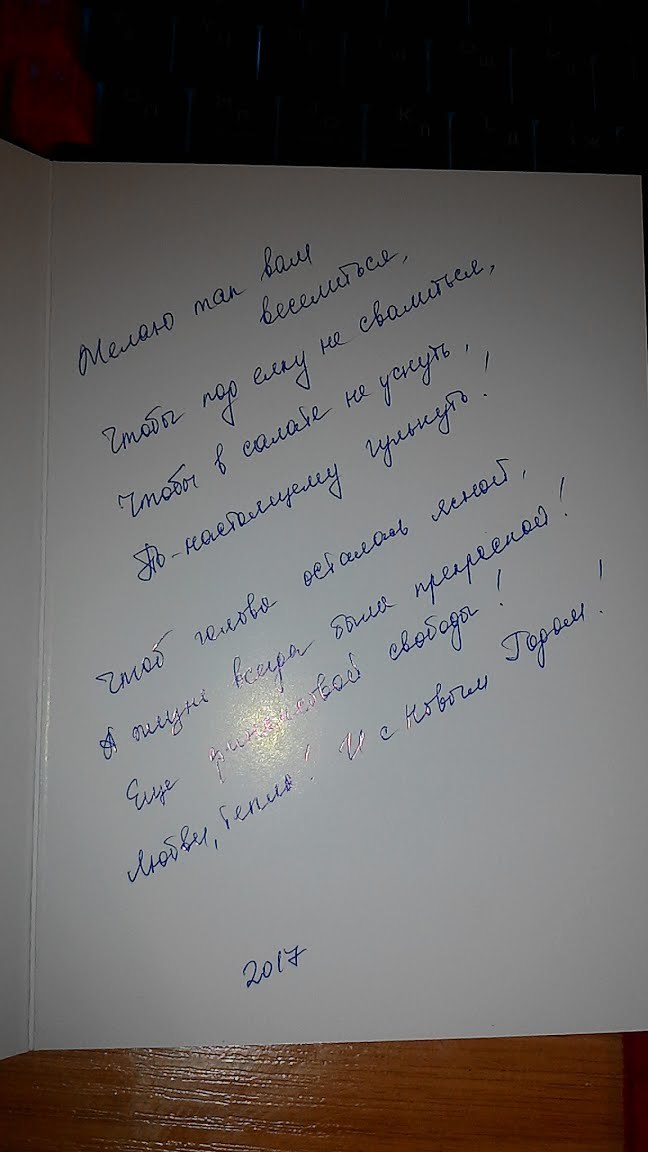 Желаю так вам
веселиться,
Чтобы под елку не свалиться,
Чтобы в салате не уснуть,
По-настоящему гульнуть!
Чтоб голова осталась ясной,
А жизнь всегда была прекрасной!
Еще финансовой свободы!
Любви, тепла! И с Новым Годом!
2017